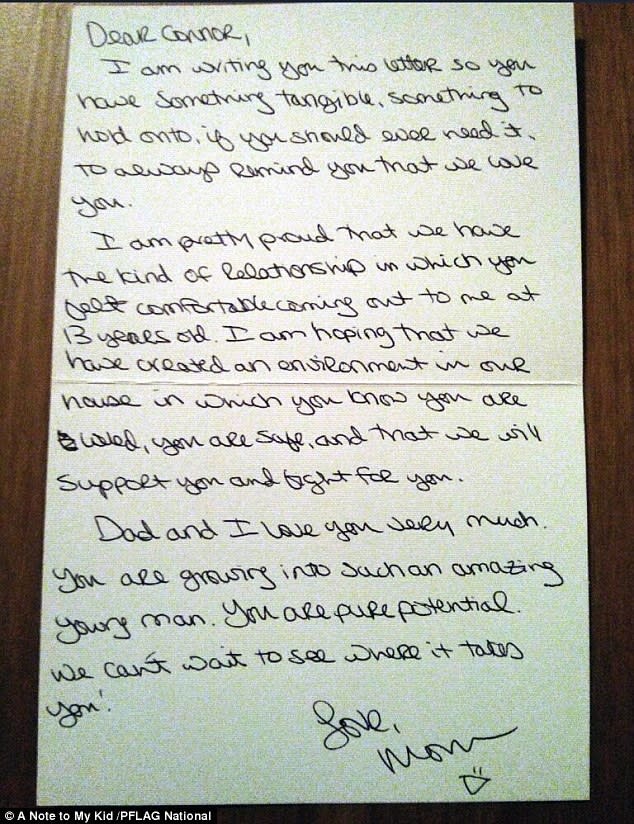 Dear Connor,
I am writing you this letter so you
have something tangible, something to
hold onto, if you should ever need it,
to always remind you that we love
you.
I am pretty proud that we have
the kind of relationship in which you
felt comfortable coming out to me at
13 years old. I am hoping that we
have created an environment in our
house in which you know you are
loved, you are safe, and that we will
support you and fight for you.
Dad and I love you very much.
You are growing into such an amazing
young man. You are pure potential.
We can't wait to see where it takes
you!
Love,
Mom
© A Note to My Kid /PFLAG National